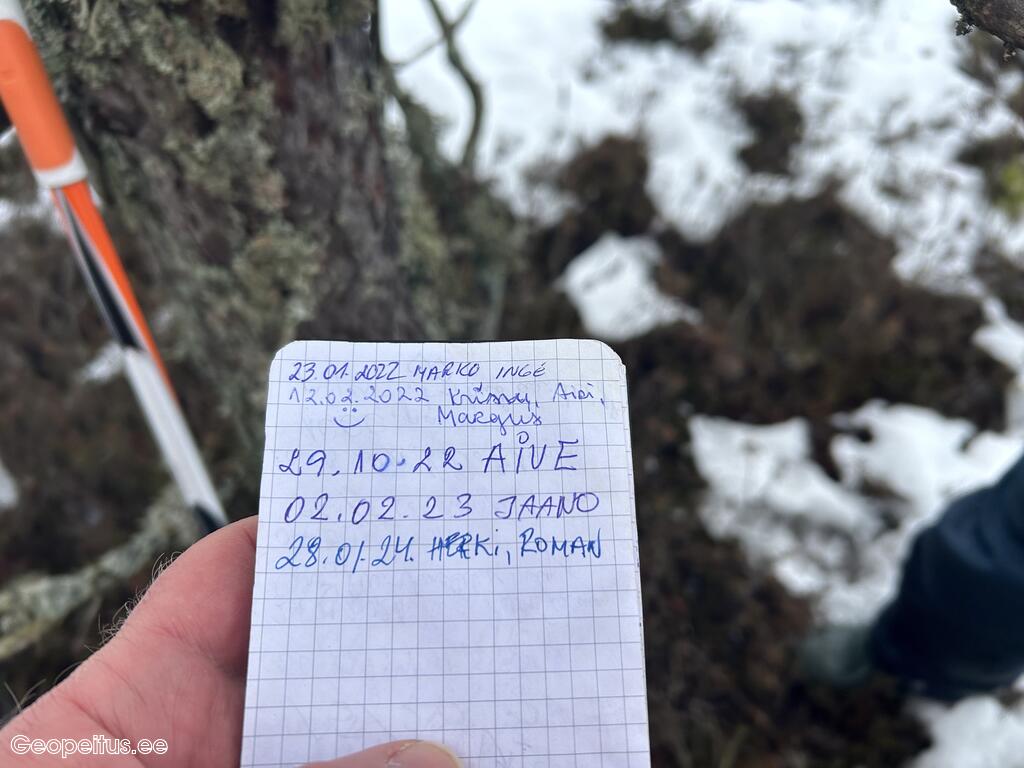 23.01.2022 MARKO INGE
12.02.2022 Aivi,
Margus
29.10.22 AIVE
02.02.23 JAANO
28.01.24. HERKi, ROMAN
Geopeitus.ee